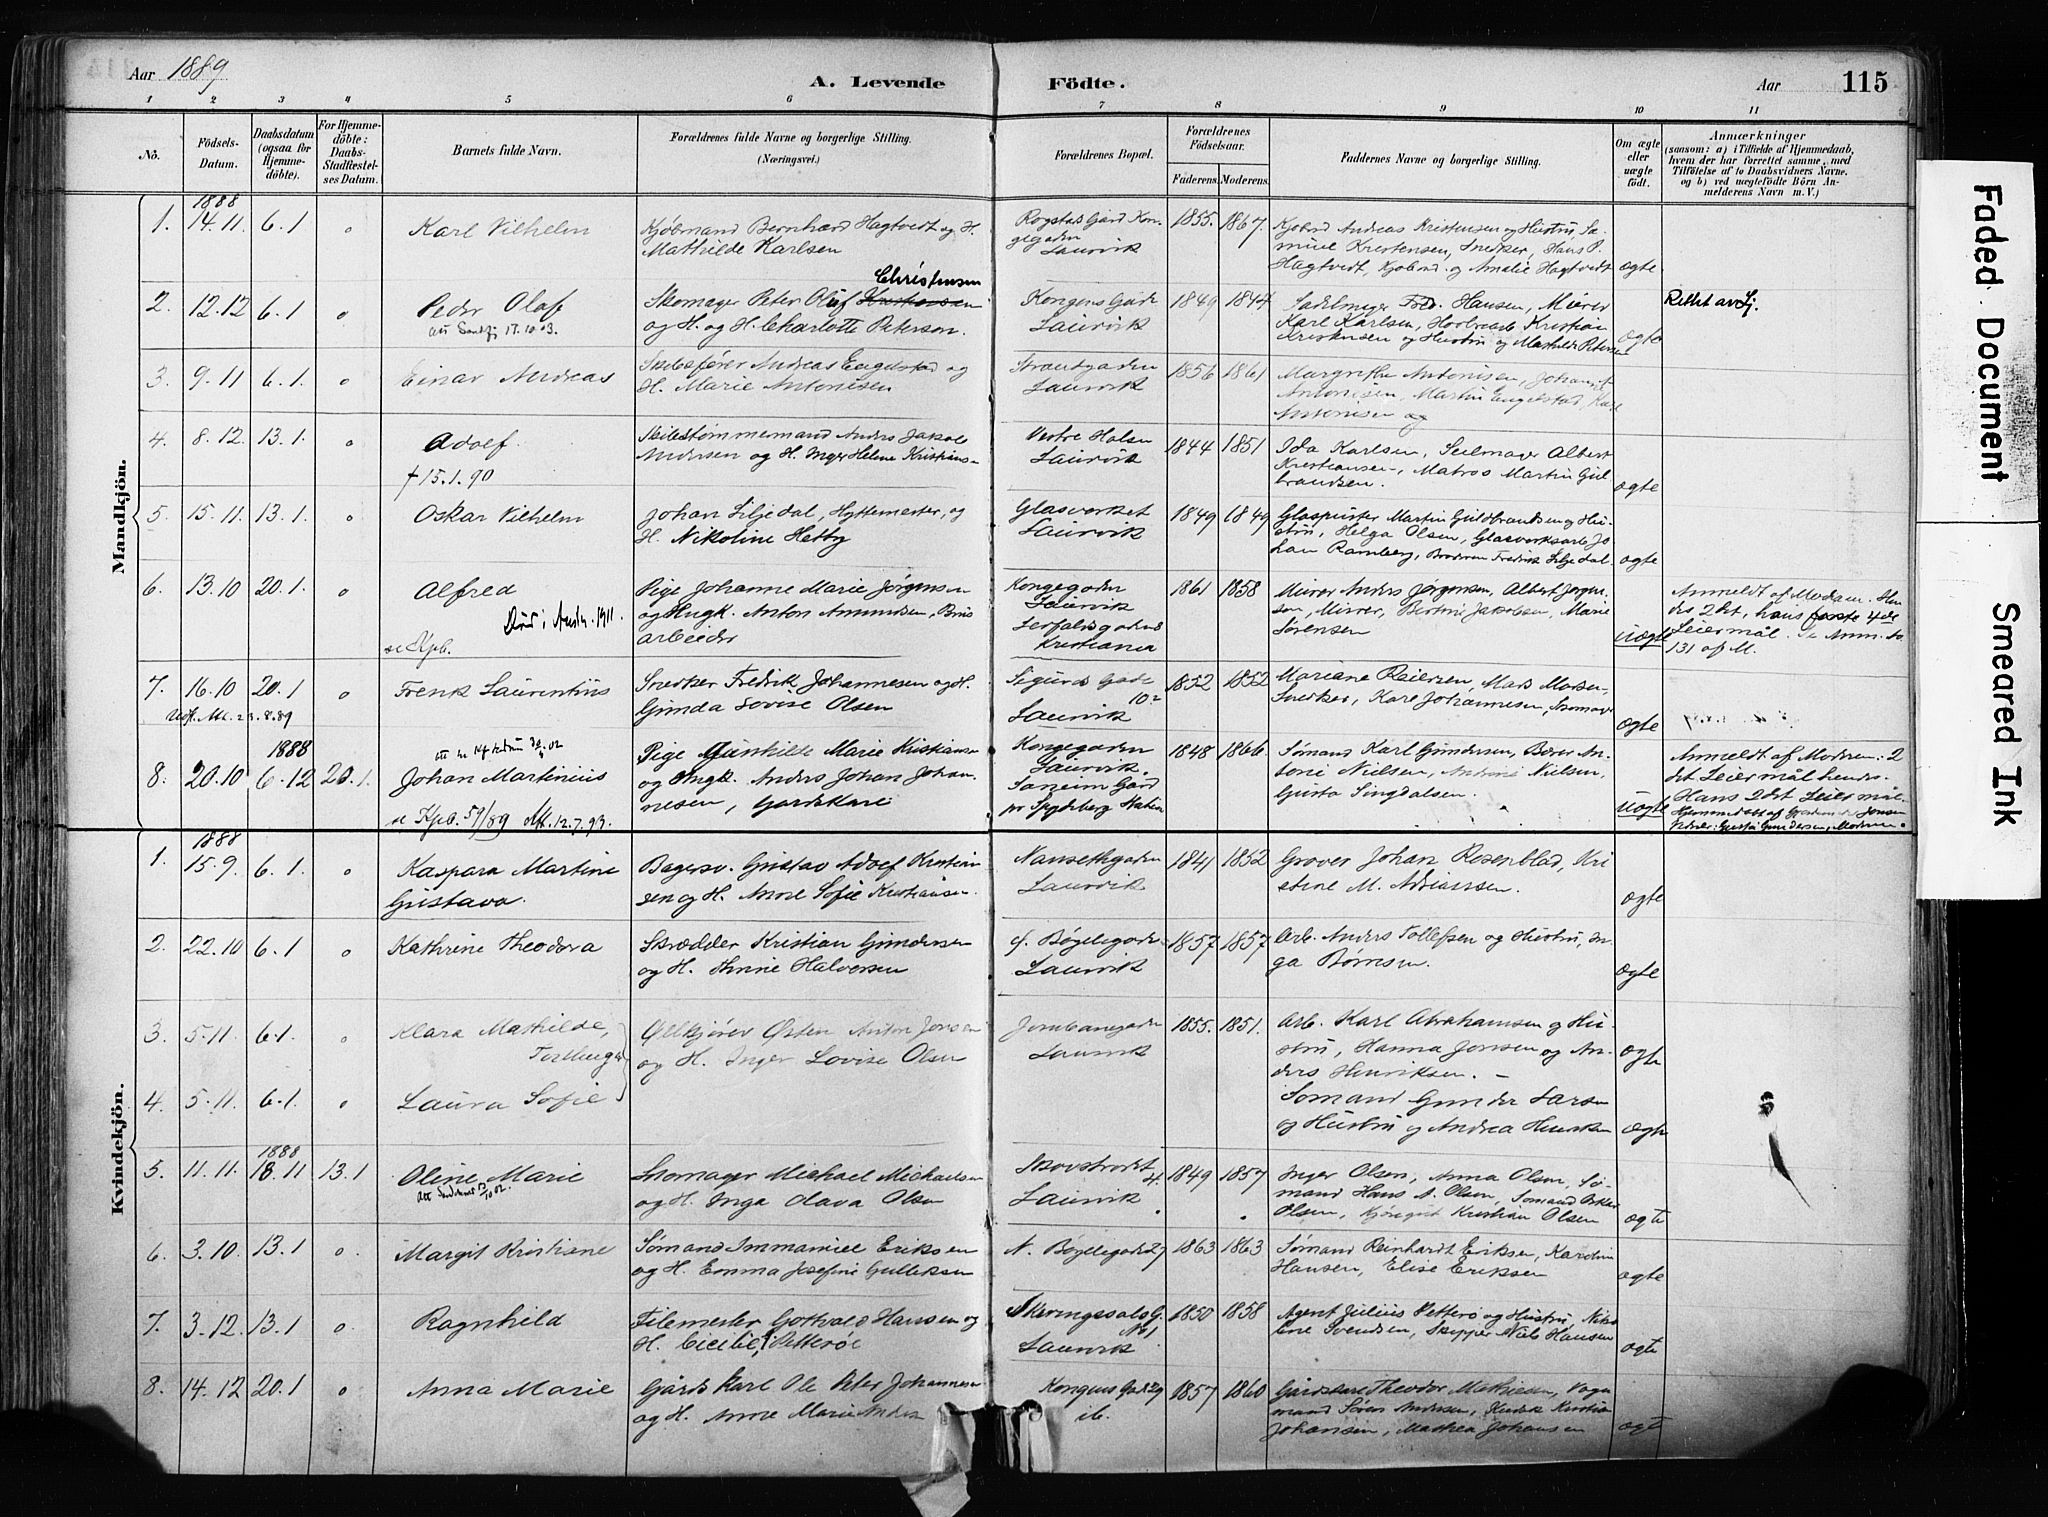 Aar 1889
A. Levende Födte.
Aar 115
1 2 3 4 5 6 7 8 9 10 11
No.
Födsels-Datum.
Daabsdatum (ogsaa for Hjemmedöbte).
For Hjemmedöbte: Daabs-Stadfæstelses Datum.
Barnets fulde Navn.
Forældrenes fulde Navne og borgerlige Stilling. (Næringsvei.)
Forældrenes Bopæl.
Forældrenes Födselsaar.
Faderens. Moderens.
Faddernes Navne og borgerlige Stilling.
Om ægte eller uægte födt.
Anmærkninger
(saasom: a) i Tilfælde af Hjemmedaab, hvem der har forrettet samme, med Tilföielse af to Daabsvidners Navne. og b) ved uægtefödte Börn Anmelderens Navn m. V.)
Mandkjön.
1888
1. 14.11. 6.1 o Karl Vilhelm
Kjøbmand Bernhard Hagtvedt og H.
Mathilde Karlsen
Rogstads Gård Kongegaden
Laurvik
1855. 1867.
Kjøbmd Andreas Kristensen og Hustru
Hagtvedt, Kjøbmd. og Amalie Hagtvedt
ægte
Christensen
2. 12.12 6.1 o Peder Olaf
17.10.03.
Skomager Peter Oluf
og H. og H. Charlotte Peterson.
Kongens Gade
Laurvik
1849 1844
Sadelmager Fred. Hansen, Murer
Karl Karlsen,
Kristensen og Hustru og Mathilde Petersen
ægte
Rettet av
3. 9.11 6.1. o Einar Andreas
Skibsfører Andreas Engelstad og
H. Marie Antonisen
Strandgaden
Laurvik
1856 1861
Margrethe Antonisen,
Antonisen, Martin Engelstad, Karl
Antonisen og
4. 8.12. 13.1. o Adolf
† 15.1.90
Skibstømmermand Anders Jakob
Andersen og H. Inger Helene Kristians-
Vestre Halsen
Laurvik
1844 1851
Ida Karlsen, Seilmager Albert
Kristiansen, Matros Martin Gul
brandsen.
ægte
5. 15.11. 13.1. o Oskar Vilhelm
Johan Liljedal, Hyttemester, og
H. Nikoline Hetby
Glasverket
Laurvik
1849 1849
Glaspuster Martin Guldbrandsen og Hu-
stru, Helga Olsen, Glasverksarb. Jo
han Ramberg, Broderen Fredrik Liljedal.
ægte
6. 13.10 20.1. o Alfred
1911.
se Kpb.
Pige Johanne Marie Jørgensen
og Ungk. Anton Amundsen, Brus
arbeider
Kongegaden
Laurvik
Kristiania
1861 1858
Murer Anders Jørgensen, Albert Jørgen
sen, Murer, Jakobsen, Marie
Sørensen
uægte
Anmeldt af Modern. Hen
des 2det, hans 4de
Leiermål. Se Anm. No
131 af M.
7. 16.10 20.1 o Frenk Laurentius
23.8.89
Snedker Fredrik Johannesen og H.
Gunda Lovise Olsen
Sigurds Gade
10
Laurvik
1852 1852
Mariane Reiersen, Mads Madsen
Snedker, Karl Johannesen,
ægte
1888
8. 20.10 6.12 20.1. Johan Martinius
se Kpb. 59/89 Att. 12.7.93.
Pige Gunhilde Marie Kristianse
og Ungk. Anders Johan Johan
nesen, Gårdskarl
Kongegaden
Laurvik.
Saneim Gård
pr Spydeberg Station
1848 1866.
Sømand Karl Gundersen,
Nielsen, Andrine Nielsen,
Gusta Singdalsen.
uægte
Anmeldt af Modren. 2
det Leiermål hendes.
Hans 2det Leiermål.
Kvindekjön.
1888
1. 15.9. 6.1. o Kaspara Martine
Gustava.
Bagersv. Gustav Adolf Kristian
sen og H. Anne Sofie Kristiansen.
Nansethgaden
Laurvik
1841 1852
Graver Johan Rosenblad, Kri
stine M. Adriansen.
ægte
2. 22.10 6.1 o Kathrine Theodora
Skrædder Kristian Gundersen
og H. Thrine Halvorsen
Bøgelegaden
Laurvik
1857 1857
Arb. Anders Tollefsen og Hustru, In-
ga Børresen.
ægte
3. 5.11 6.1. o Klara Mathilde,
Tvillinger
Ølkjører Østen Anton Jonsen
og H. Inger Lovise Olsen
Jernbanegaden
Laurvik
1855. 1851.
Arb. Karl Abrahamsen og Hu-
stru, Hanna Jonsen og An-
ders Henriksen. –
ægte
4. 5.11. 6.1. o Laura Sofie
Sømand Gunder Larsen
og Hustru og Andrea Henriksen
ægte
1888
5. 11.11. 18.11 13.1 Oline Marie
Skomager Michael Michaelsen
og H. Inga Olava Olsen
Skovstrædet
4.
Laurvik
1849 1857
Inger Olsen, Anna Olsen, Sø-
mand Hans A. Olsen, Sømand Oskar
Olsen, Kristian Olsen
ægte
6. 3.10. 13.1 o. Margit Kristiane
Sømand Immanuel Eriksen
og H. Emma Josefine Gulliksen
N. Bøgelegaden 27
1863 1863
Sømand Reinhardt Eriksen, Karoline
Hansen, Elise Eriksen
ægte
7. 3.12. 13.1 o. Ragnhild
Filemester Gottvald Hansen og
H. Cicilie Vetterøe
Skiringssals G.
No 1
Laurvik
1850 1858
Agent Julius Vetterø og Hustru, Niko
line Svendsen, Skipper Niels Hansen
ægte
8. 14.12 20.1 o Anna Marie
Gårdskarl Ole Peter Johannesen
og H. Anne Marie Anders
Kongens Gade 29
ib.
1857 1860
Gårdskarl Theodor Mathiesen, Vogn
mand Søren Andersen, Kristian
Johansen, Mathea Johansen
ægte
Faded Document
Smeared Ink